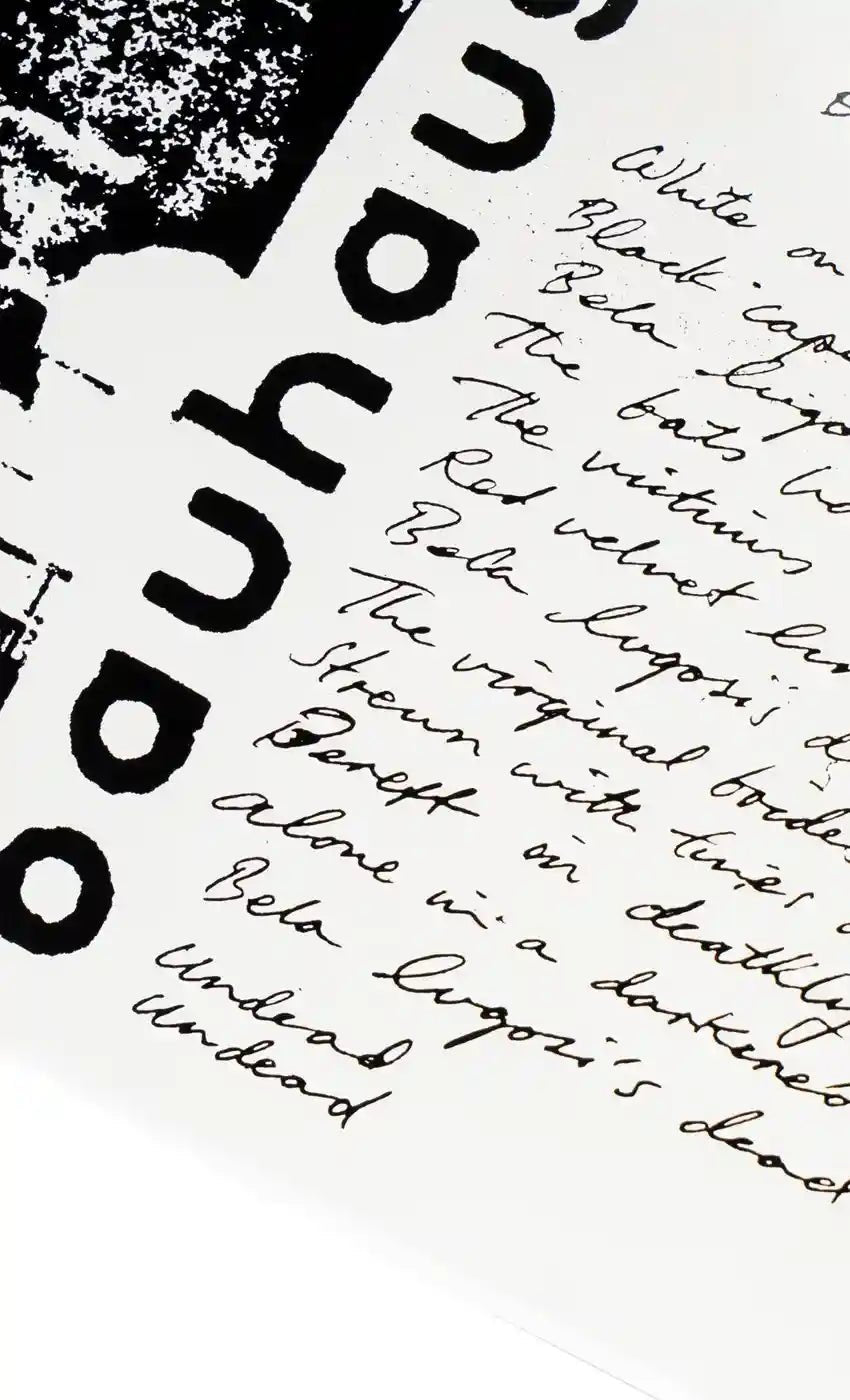 bauhaus
White on
Black cape
Bela lugo
The bats ha
The victims
Red velvet lin
Bela lugosi's d
The virginal brides
Strewn with times
Bereft in deathly
alone in a darkened
Bela lugosi's dead
Undead
Undead